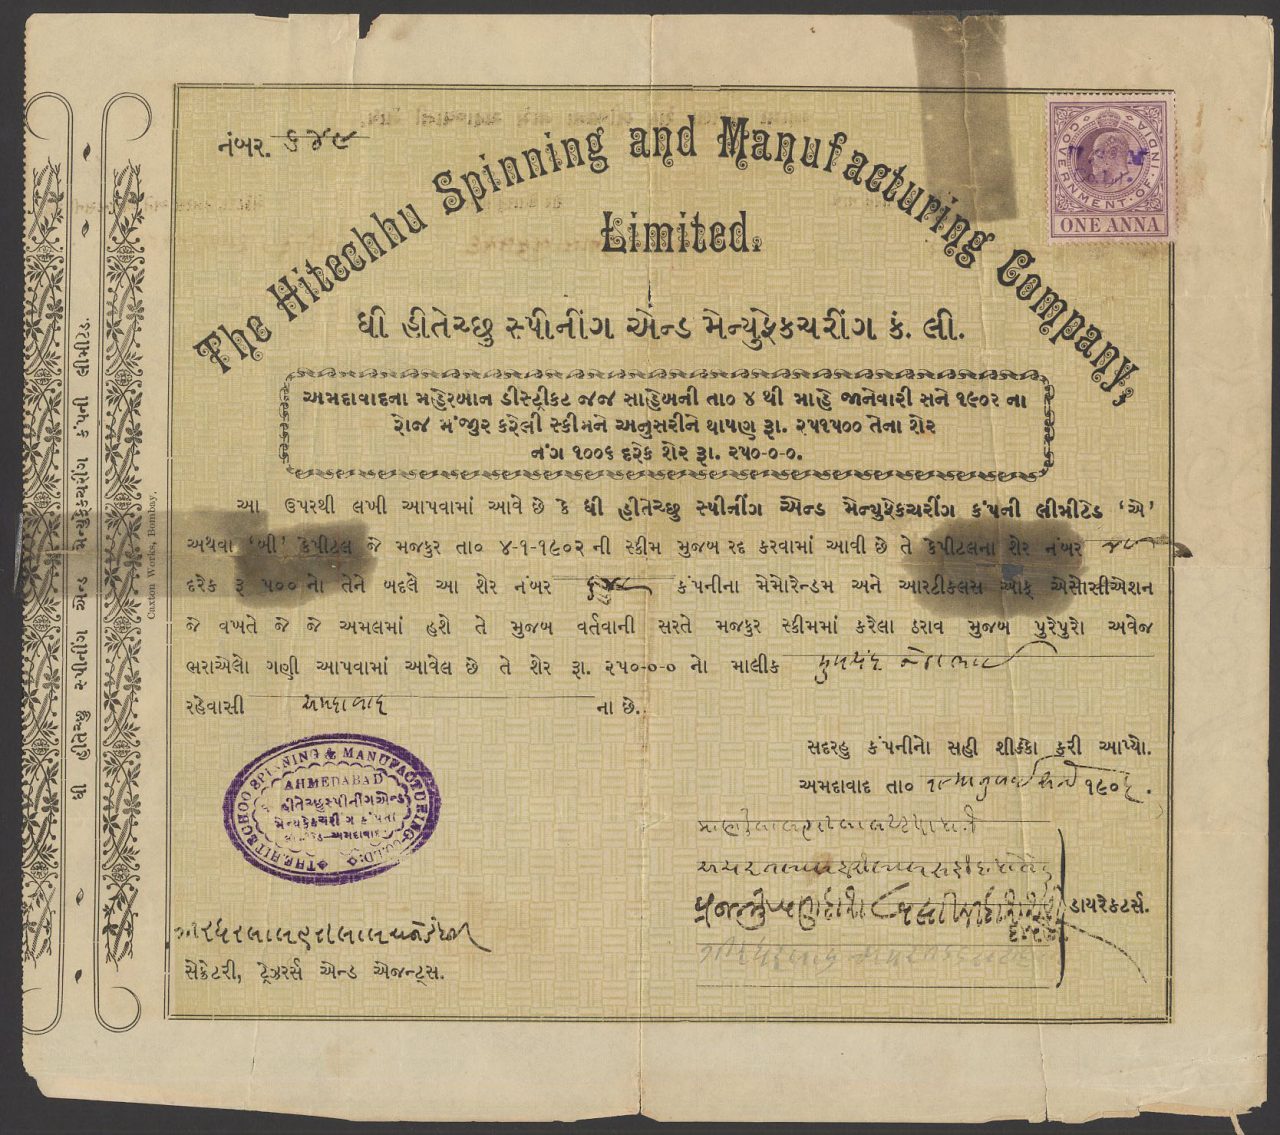 નંબર. ૬૪૯
The Hitechhu Spinning and Manufacturing Company,
Limited.
GOVERNMENT OF INDIA
ONE ANNA
ધી હીતેચ્છુ સ્પીનીંગ એન્ડ મેન્યુફેકચરીંગ કં. લી.
અમદાવાદના મહેરબાન ડીસ્ટ્રીકટ જજ સાહેબની તા૦ ૪ થી માહે જાનેવારી સને ૧૯૦૨ ના
રોજ મંજુર કરેલી સ્કીમને અનુસરીને થાપણ રૂા. ૨૫૧૫૦૦ તેના શેર
નંગ ૧૦૦૬ દરેક શેર રૂા. ૨૫૦-૦-૦.
આ ઉપરથી લખી આપવામાં આવે છે કે ધી હીતેચ્છુ સ્પીનીંગ એન્ડ મેન્યુફેકચરીંગ કંપની લીમીટેડ ‘એ’
અથવા ‘બી’ કેપીટલ જે મજકુર તા૦ ૪-૧-૧૯૦૨ ની સ્કીમ મુજબ રદ કરવામાં આવી છે તે કેપીટલના શેર નંબર
દરેક રૂ ૫૦૦ નો તેને બદલે આ શેર નંબર ૬૪૯ કંપનીના મેમોરેન્ડમ અને આરટીકલસ ઓફ એસોસીએશન
જે વખતે જે જે અમલમાં હશે તે મુજબ વર્તવાની સરતે મજકુર સ્કીમમાં કરેલા ઠરાવ મુજબ પુરેપુરો અવેજ
ભરાએલો ગણી આપવામાં આવેલ છે તે શેર રૂા. ૨૫૦-૦-૦ નો માલીક
રહેવાસી અમદાવાદ ના છે.
સદરહુ કંપનીનો સહી શીક્કો કરી આપ્યો.
અમદાવાદ તા૦ ૧૯૦
ડાયરેકટર્સ.
THE HITECHOO SPINNING & MANUFACTURING CO. LD:
AHMEDABAD
હીતેચ્છુ સ્પીનીંગ એન્ડ
મેન્યુફેકચરીંગ કંપની
અમદાવાદ
સેક્રેટરી, ટ્રેઝરર્સ એન્ડ એજન્ટ્સ.
Caxton Works, Bombay.
ધી હીતેચ્છુ સ્પીનીંગ એન્ડ મેન્યુફેકચરીંગ કંપની લીમીટેડ.